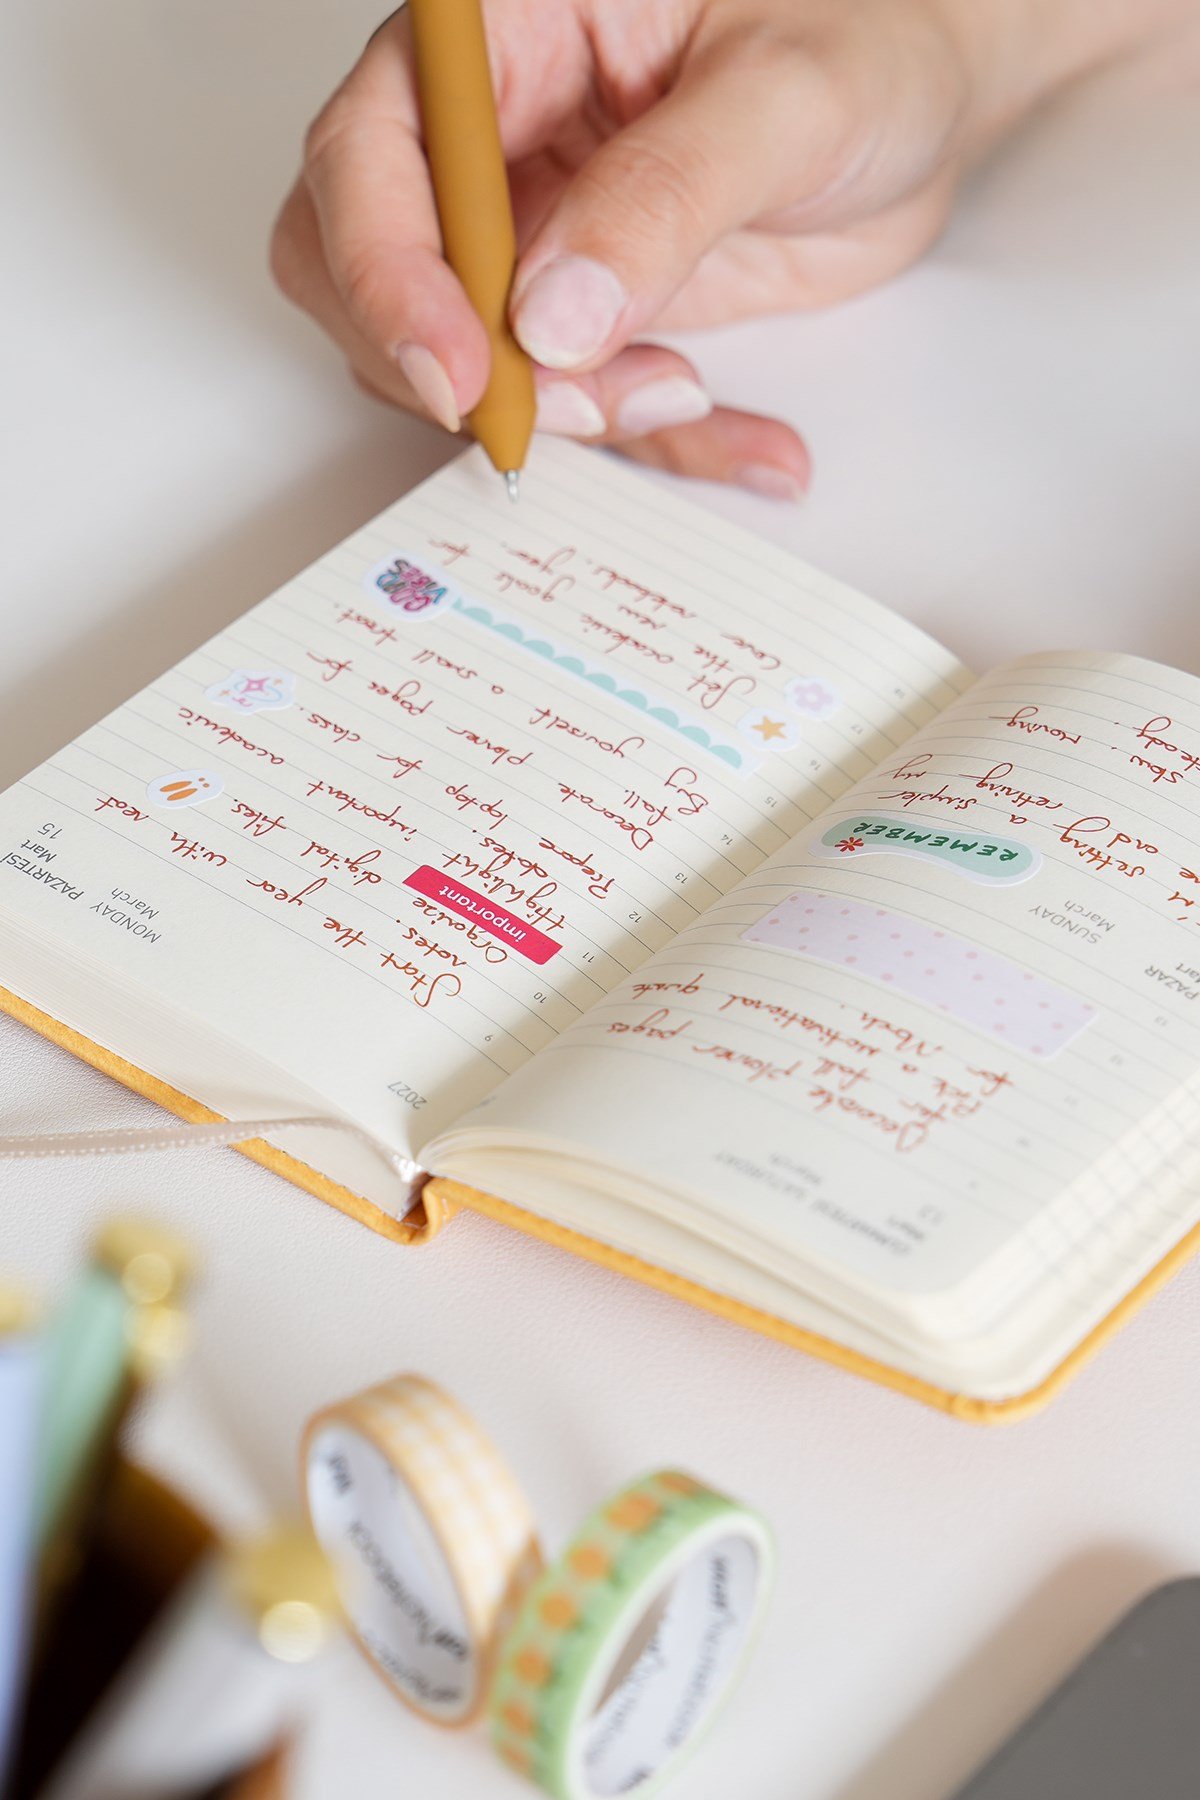 MONDAY PAZARTESİ
March Mart 15
2027
9
Start the year with neat
10
notes.
Organize digital files.
important
11
Highlight important academic
12
dates.
Prepare laptop for class.
13
Decorate planner pages for
14
fall.
15
Buy yourself a small treat.
16
GOOD VIBES
17
Set academic goals for
the new year.
18
Love notebooks.
CUMARTESİ SATURDAY
Mart March
13
Decorate planner pages
for fall
Pick a motivational quote
for March.
PAZAR SUNDAY
Mart March
REMEMBER
I'm setting a simpler
and refining my
Slow, moving
steady.
notebook